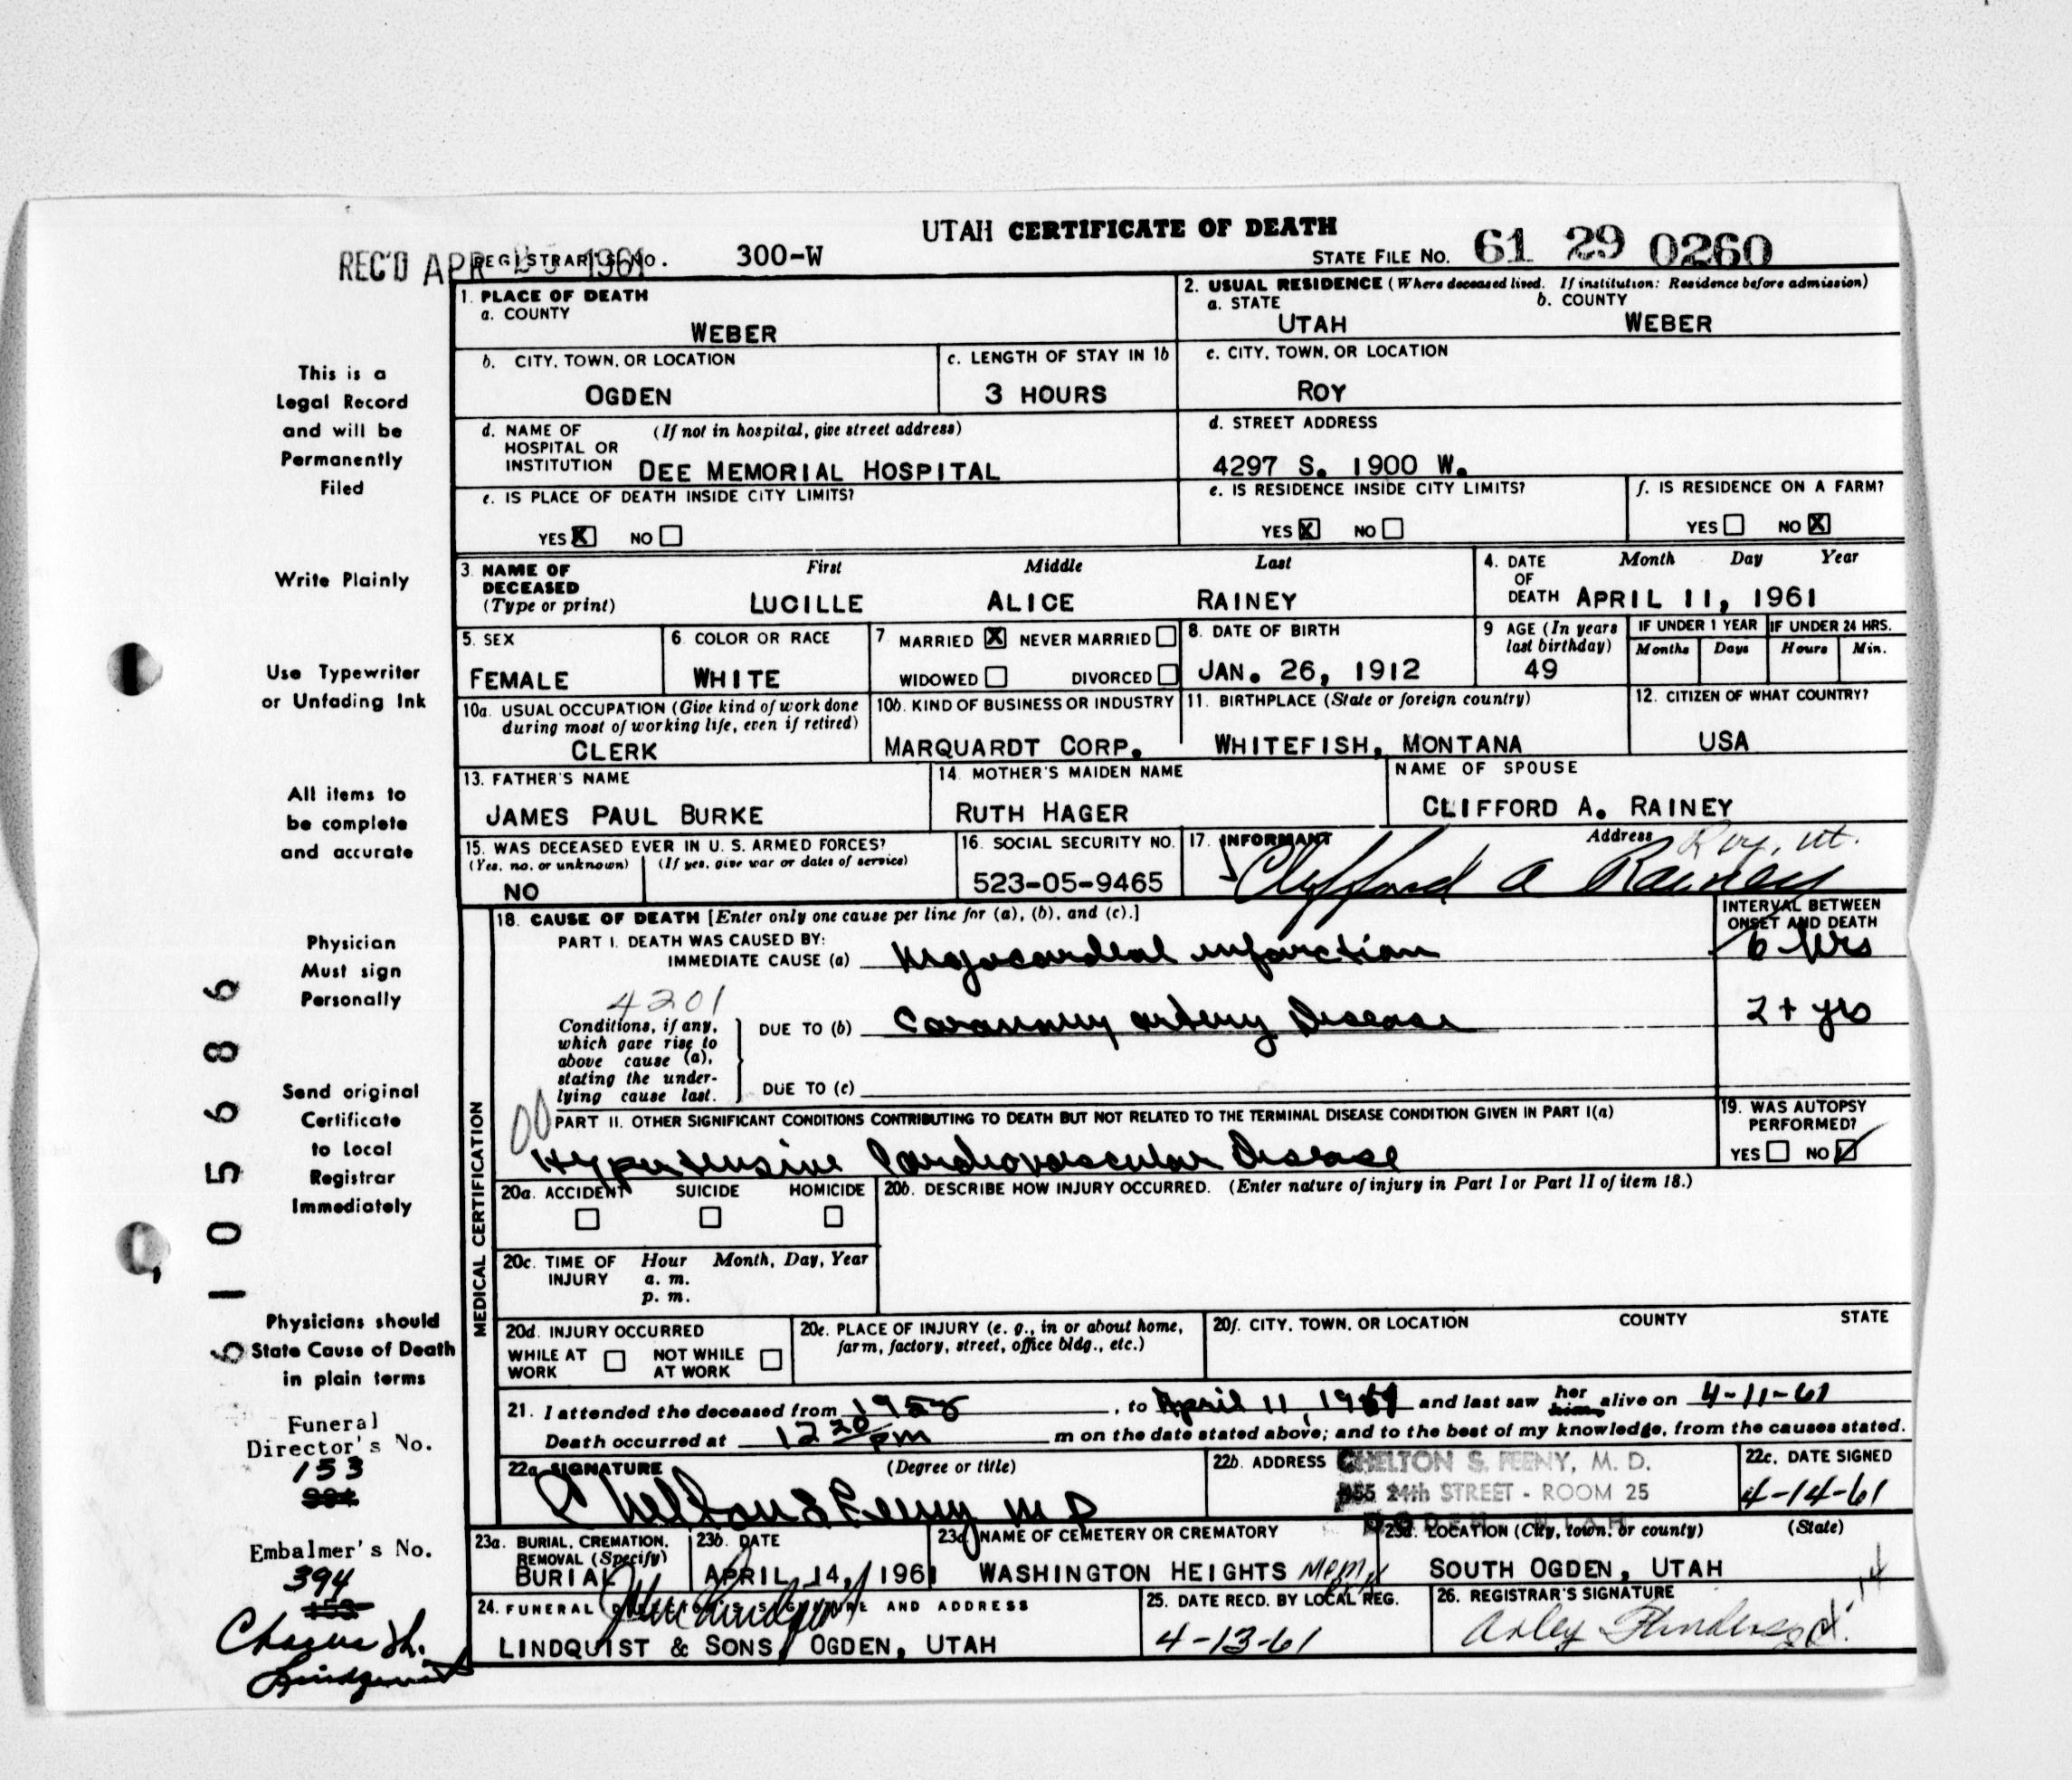 UTAH CERTIFICATE OF DEATH
REC'D APR 1961 REGISTRAR'S NO. 300-W STATE FILE NO. 61 29 0260
1. PLACE OF DEATH
a. COUNTY
WEBER
2. USUAL RESIDENCE (Where deceased lived. If institution: Residence before admission)
a. STATE b. COUNTY
UTAH WEBER
b. CITY, TOWN, OR LOCATION
OGDEN
c. LENGTH OF STAY IN 1b
3 HOURS
c. CITY, TOWN, OR LOCATION
ROY
d. NAME OF (If not in hospital, give street address)
HOSPITAL OR
INSTITUTION DEE MEMORIAL HOSPITAL
d. STREET ADDRESS
4297 S. 1900 W.
e. IS PLACE OF DEATH INSIDE CITY LIMITS?
YES X NO
e. IS RESIDENCE INSIDE CITY LIMITS?
YES X NO
f. IS RESIDENCE ON A FARM?
YES NO X
3. NAME OF First Middle Last
DECEASED
(Type or print) LUCILLE ALICE RAINEY
4. DATE Month Day Year
OF
DEATH APRIL 11, 1961
5. SEX
FEMALE
6. COLOR OR RACE
WHITE
7. MARRIED X NEVER MARRIED
WIDOWED DIVORCED
8. DATE OF BIRTH
JAN. 26, 1912
9 AGE (In years
last birthday)
49
IF UNDER 1 YEAR IF UNDER 24 HRS.
Months Days Hours Min.
10a. USUAL OCCUPATION (Give kind of work done
during most of working life, even if retired)
CLERK
10b. KIND OF BUSINESS OR INDUSTRY
MARQUARDT CORP.
11. BIRTHPLACE (State or foreign country)
WHITEFISH, MONTANA
12. CITIZEN OF WHAT COUNTRY?
USA
13. FATHER'S NAME
JAMES PAUL BURKE
14. MOTHER'S MAIDEN NAME
RUTH HAGER
NAME OF SPOUSE
CLIFFORD A. RAINEY
15. WAS DECEASED EVER IN U. S. ARMED FORCES?
(Yes, no, or unknown) (If yes, give war or dates of service)
NO
16. SOCIAL SECURITY NO.
523-05-9465
17. INFORMANT Address Roy, Ut.
Clifford A Rainey
18. CAUSE OF DEATH [Enter only one cause per line for (a), (b), and (c).]
INTERVAL BETWEEN
ONSET AND DEATH
PART I. DEATH WAS CAUSED BY:
IMMEDIATE CAUSE (a) Myocardial infarction 6 hrs
4201
Conditions, if any,
which gave rise to
above cause (a),
stating the under-
lying cause last.
DUE TO (b) Coronary artery Disease 2+ yrs
DUE TO (c)
00
PART II. OTHER SIGNIFICANT CONDITIONS CONTRIBUTING TO DEATH BUT NOT RELATED TO THE TERMINAL DISEASE CONDITION GIVEN IN PART I(a)
Hypertensive Cardiovascular Disease
19. WAS AUTOPSY
PERFORMED?
YES NO
MEDICAL CERTIFICATION
20a. ACCIDENT SUICIDE HOMICIDE
20b. DESCRIBE HOW INJURY OCCURRED. (Enter nature of injury in Part I or Part II of item 18.)
20c. TIME OF Hour Month, Day, Year
INJURY a. m.
p. m.
20d. INJURY OCCURRED
WHILE AT NOT WHILE
WORK AT WORK
20e. PLACE OF INJURY (e. g., in or about home,
farm, factory, street, office bldg., etc.)
20f. CITY, TOWN, OR LOCATION COUNTY STATE
21. I attended the deceased from 1958, to April 11, 1961 and last saw her him alive on 4-11-61
Death occurred at 12 20 pm m on the date stated above; and to the best of my knowledge, from the causes stated.
22a. SIGNATURE (Degree or title)
Chelton S Feeny MD
22b. ADDRESS CHELTON S. FEENY, M. D.
24th STREET - ROOM 25
OGDEN, UTAH
22c. DATE SIGNED
4-14-61
23a. BURIAL, CREMATION,
REMOVAL (Specify)
BURIAL
23b. DATE
APRIL 14, 1961
23c. NAME OF CEMETERY OR CREMATORY
WASHINGTON HEIGHTS Mem.
23d. LOCATION (City, town, or county) (State)
SOUTH OGDEN, UTAH
24. FUNERAL DIRECTOR'S SIGNATURE AND ADDRESS
LINDQUIST & SONS, OGDEN, UTAH
25. DATE RECD. BY LOCAL REG.
4-13-61
26. REGISTRAR'S SIGNATURE
This is a
Legal Record
and will be
Permanently
Filed
Write Plainly
Use Typewriter
or Unfading Ink
All items to
be complete
and accurate
Physician
Must sign
Personally
Send original
Certificate
to Local
Registrar
Immediately
Physicians should
State Cause of Death
in plain terms
Funeral
Director's No.
153
Embalmer's No.
394
6 1 0 5 6 8 6